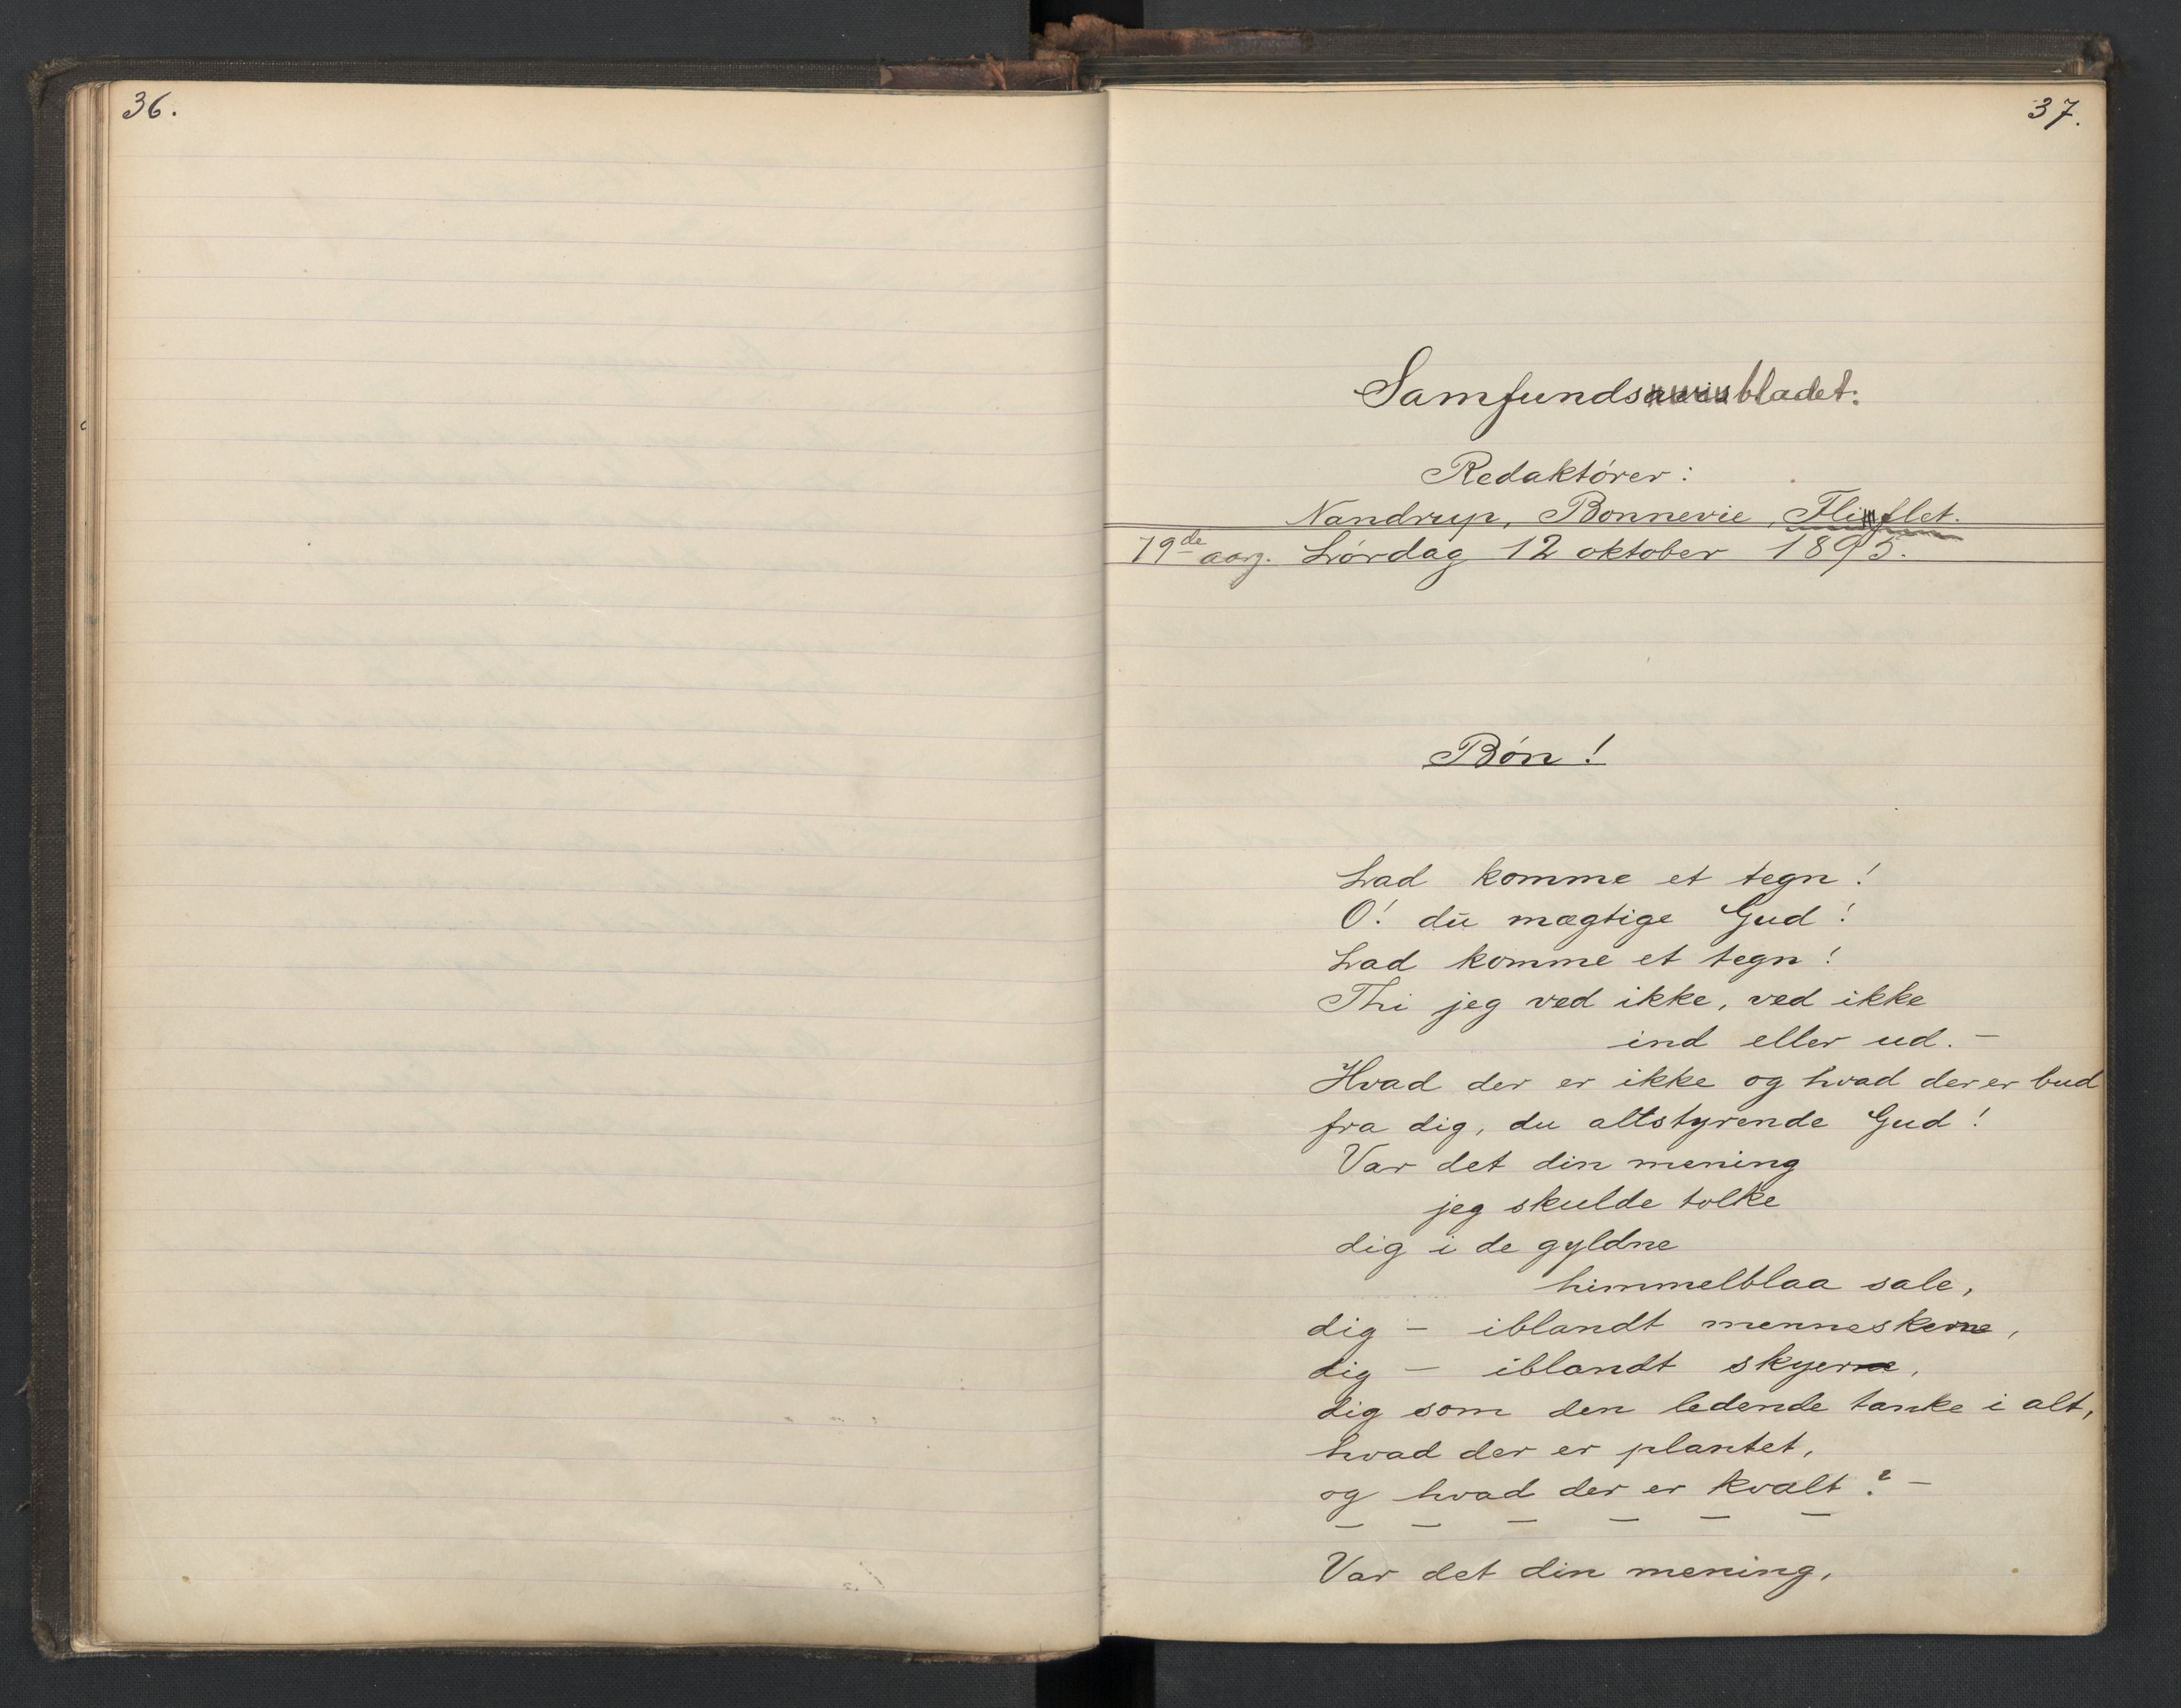 36.
37.
Samfundsbladet.
Redaktórer:
Nandrup, Bonnevie,
19de aarg. Lórdag 12 oktober 1895.
Bón!
Lad komme et tegn!
O! dū mægtige Gud!
Lad komme et tegn!
Thi jeg ved ikke, ved ikke
ind eller ud. –
Hvad der er ikke og hvad der er bud
fra dig, du altstyrende Gud!
Var det din mening
jeg skulde tolke
dig i de gyldne
himmelblaa sale,
dig – iblandt menneskerne,
dig – iblandt skyerne,
dig som den ledende tanke i alt,
hvad der er plantet,
og hvad der er kvalt? –
– – – – – –
Var det din mening,